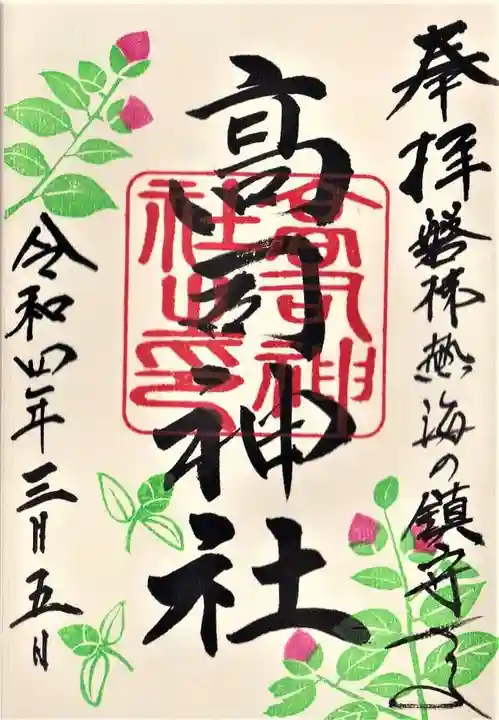 奉拝
磐梯熱海の鎮守
高司神社
高司神社之印
令和四年三月五日